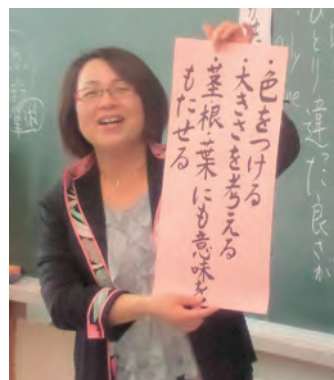 ・色をつける
・大きさを考える
・茎・根・葉にも意味を
もたせる
ひとり違った良さが